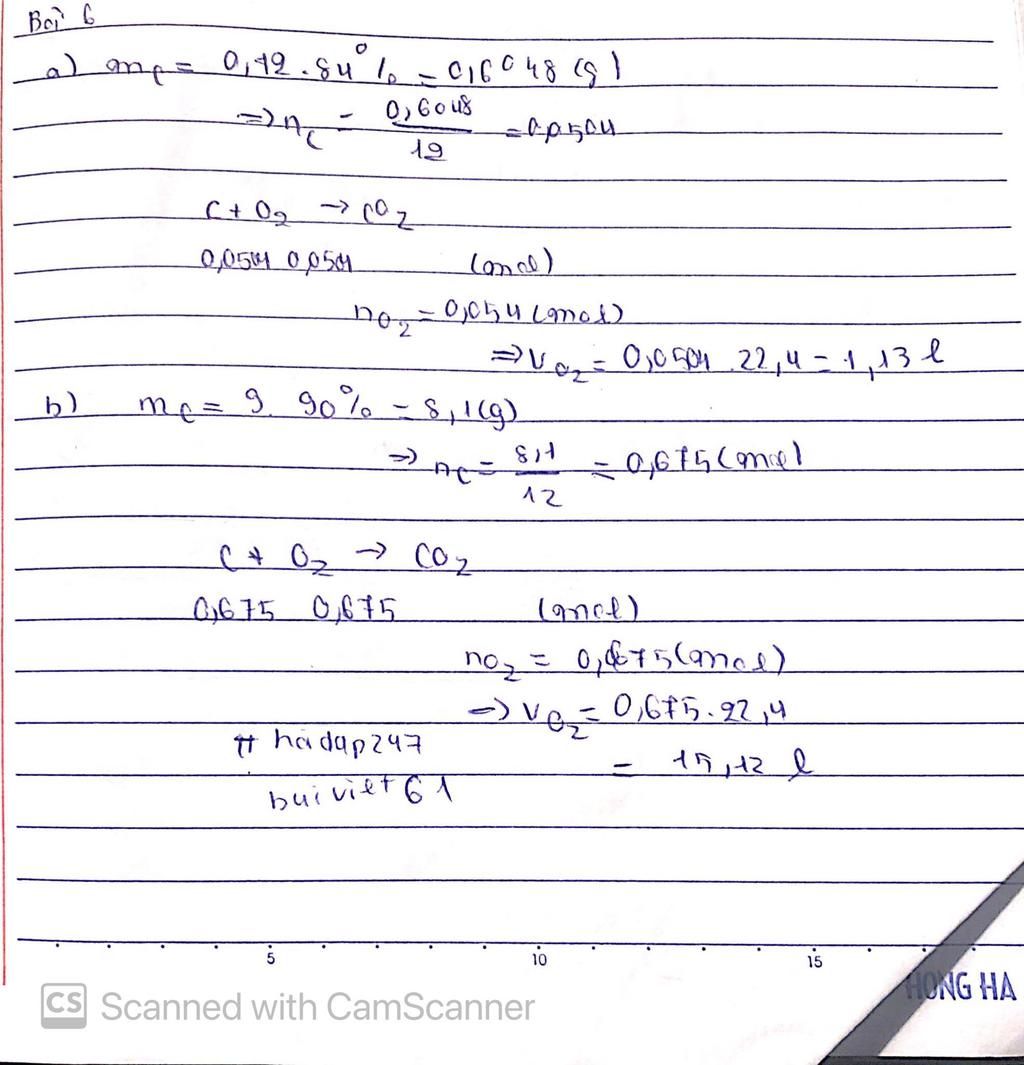 Bài 6
a) mC = 0,72 . 84% = 0,6048 (g)
=> nC = 0,6048 / 12 = 0,0504
C + O2 -> CO2
0,0504 0,0504 (mol)
nO2 = 0,054 (mol)
=> VO2 = 0,0504 . 22,4 = 1,13 l
b) mC = 9. 90% = 8,1 (g)
=> nC = 8,1 / 12 = 0,675 (mol)
C + O2 -> CO2
0,675 0,675 (mol)
nO2 = 0,675 (mol)
=> VO2 = 0,675 . 22,4
# hoidap247
= 15,12 l
buiviet61
5 10 15
HONG HA
CS Scanned with CamScanner